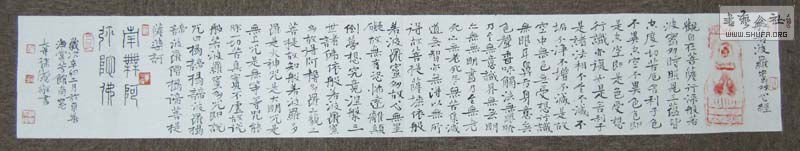 波羅蜜多心經
觀自在菩薩行深般若
波羅蜜多時照見五蘊皆
空度一切苦厄舍利子色
不異空空不異色色即
是空空即是色受想
行識亦復如是舍利子
是諸法空相不生不滅不
垢不淨不增不減是故
空中無色無受想行識
無眼耳鼻舌身意無
色聲香味觸法無眼界
乃至無意識界無無明
亦無無明盡乃至無老
死亦無老死盡無苦集滅
道無智亦無得以無所
得故菩提薩埵依般
若波羅蜜多故心無罣
礙無罣礙故無有恐怖遠離顛
倒夢想究竟涅槃三
世諸佛依般若波羅蜜
多故得阿耨多羅三藐三
菩提故知般若波羅蜜多
是大神咒是大明咒是
無上咒是無等等咒能
除一切苦真實不虛故說
般若波羅蜜多咒即說
咒曰揭諦揭諦波羅揭
諦波羅僧揭諦菩提
薩婆訶
南無阿
彌陀佛
歲次辛卯月於京華
書
WWW.SHUFA.ORG